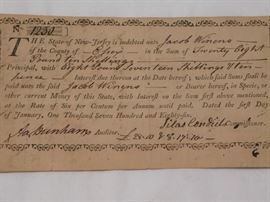 No 1230
THE State of New-Jersey is indebted unto Jacob Winens
of the County of Essex in the Sum of Twenty Eight
Pounds ten Shillings
Principal, with Eight Pounds Seventeen Shillings & ten
pence Interest due thereon at the Date hereof; which said Sums shall be
paid unto the said Jacob Winens or Bearer hereof, in Specie, or
other current Money of this State, with Interest on the Sum first above mentioned,
at the Rate of Six per Centum per Annum until paid. Dated the first Day
of January, One Thousand Seven Hundred and Eighty-six.
Dunham Auditor. Silas Condict Commissioner.
£28.10 & 8.17.10